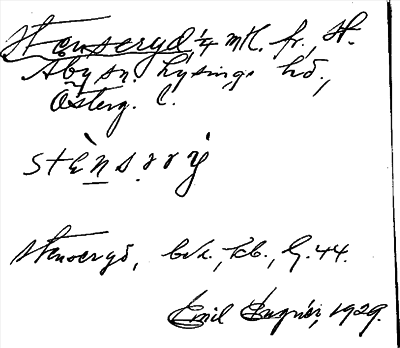 Stenseryd 1/4 mtl. fr., St.
Åby sn. Lysings hd.,
Österg. l.
stènsrrý
Stensryd, bok., kb., G. 44.
Emil 1929.